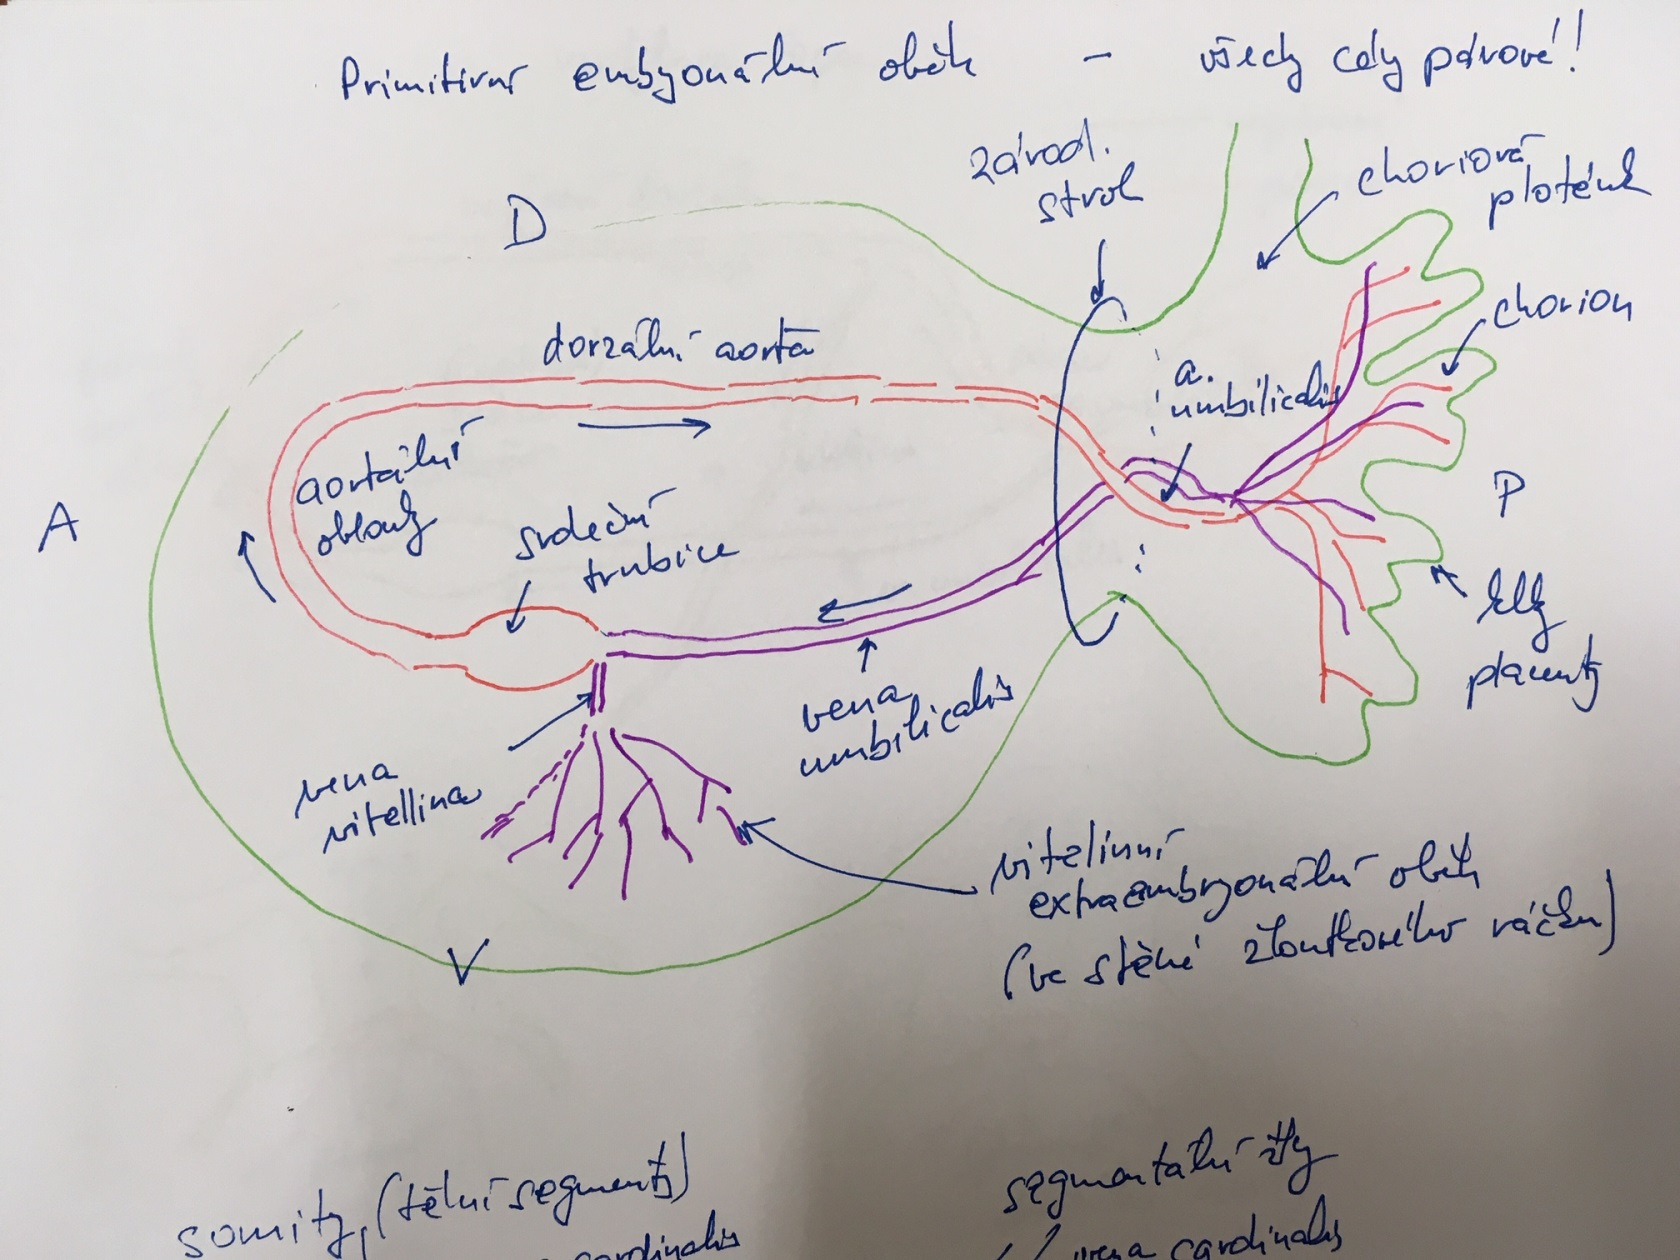 Primitivní embryonální oběh – všechy cévy párové!
zárod.
stvol
choriová
ploténk
D
chorion
dorzální aorta
a.
umbilicalis
aortální
oblouky
A
srdeční
trubice
P
klky
placenty
vena
umbilicalis
vena
vitellina
vitelinní
extraembryonální oběh
(ve stěně žloutkového váčku)
V
somity, (tělní segmenty)
segmentální žíly
cardinalis
vena cardinalis